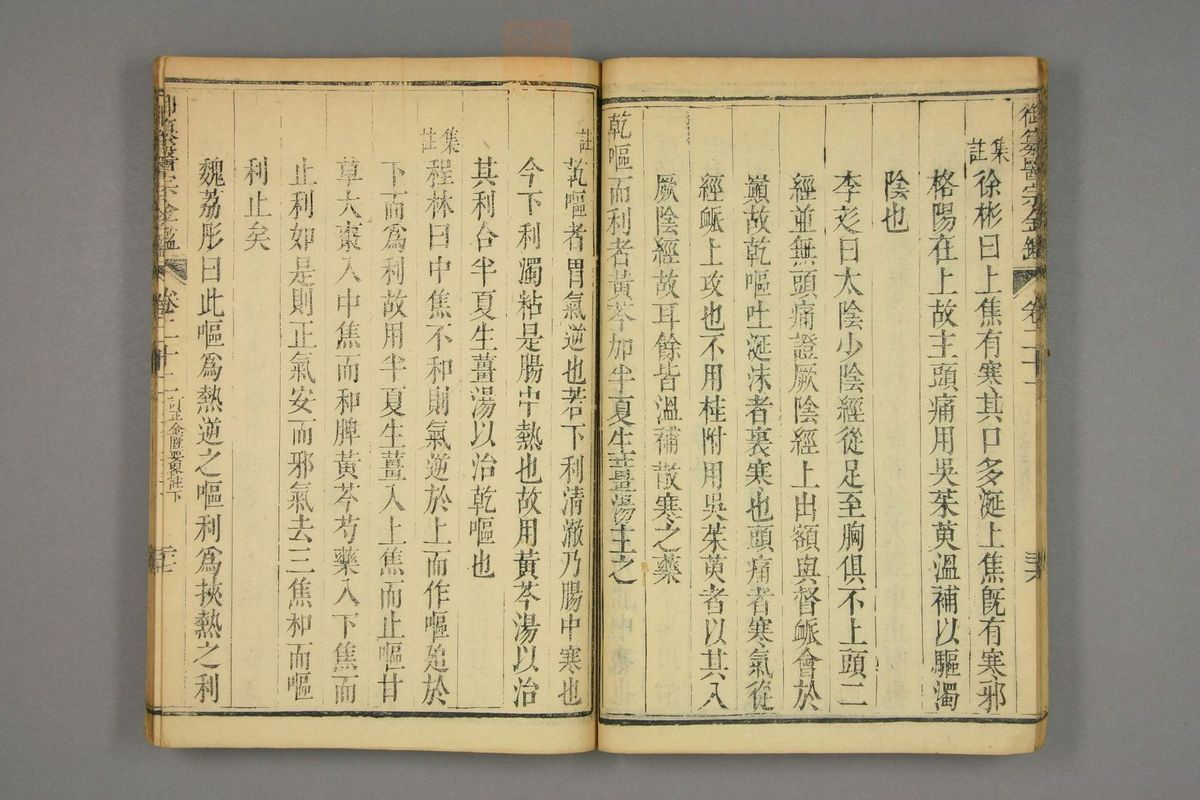 御纂醫宗金鑑
卷二十二
三六
集註
徐彬曰上焦有寒其口多涎上焦旣有寒邪
格陽在上故主頭痛用吳茱萸溫補以驅濁
陰也
李彣曰太陰少陰經從足至胸俱不上頭二
經並無頭痛證厥陰經上出額與督脈會於
巔故乾嘔吐涎沫者裏寒也頭痛者寒氣從
經脈上攻也不用桂附用吳茱萸者以其入
厥陰經故耳餘皆溫補散寒之藥
乾嘔而利者黃芩加半夏生薑湯主之
註
乾嘔者胃氣逆也若下利清澈乃腸中寒也
今下利濁粘是腸中熱也故用黃芩湯以治
其利合半夏生薑湯以治乾嘔也
集註
程林曰中焦不和則氣逆於上而作嘔迫於
下而爲利故用半夏生薑入上焦而止嘔甘
草大棗入中焦而和脾黃芩芍藥入下焦而
止利如是則正氣安而邪氣去三焦和而嘔
利止矣
魏荔彤曰此嘔爲熱逆之嘔利爲挾熱之利
御纂醫宗金鑑
卷二十二
訂正金匱要畧註下
三七